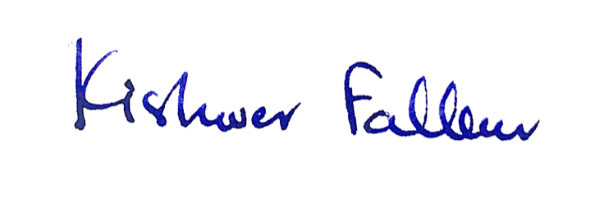 Kishwer Falkner